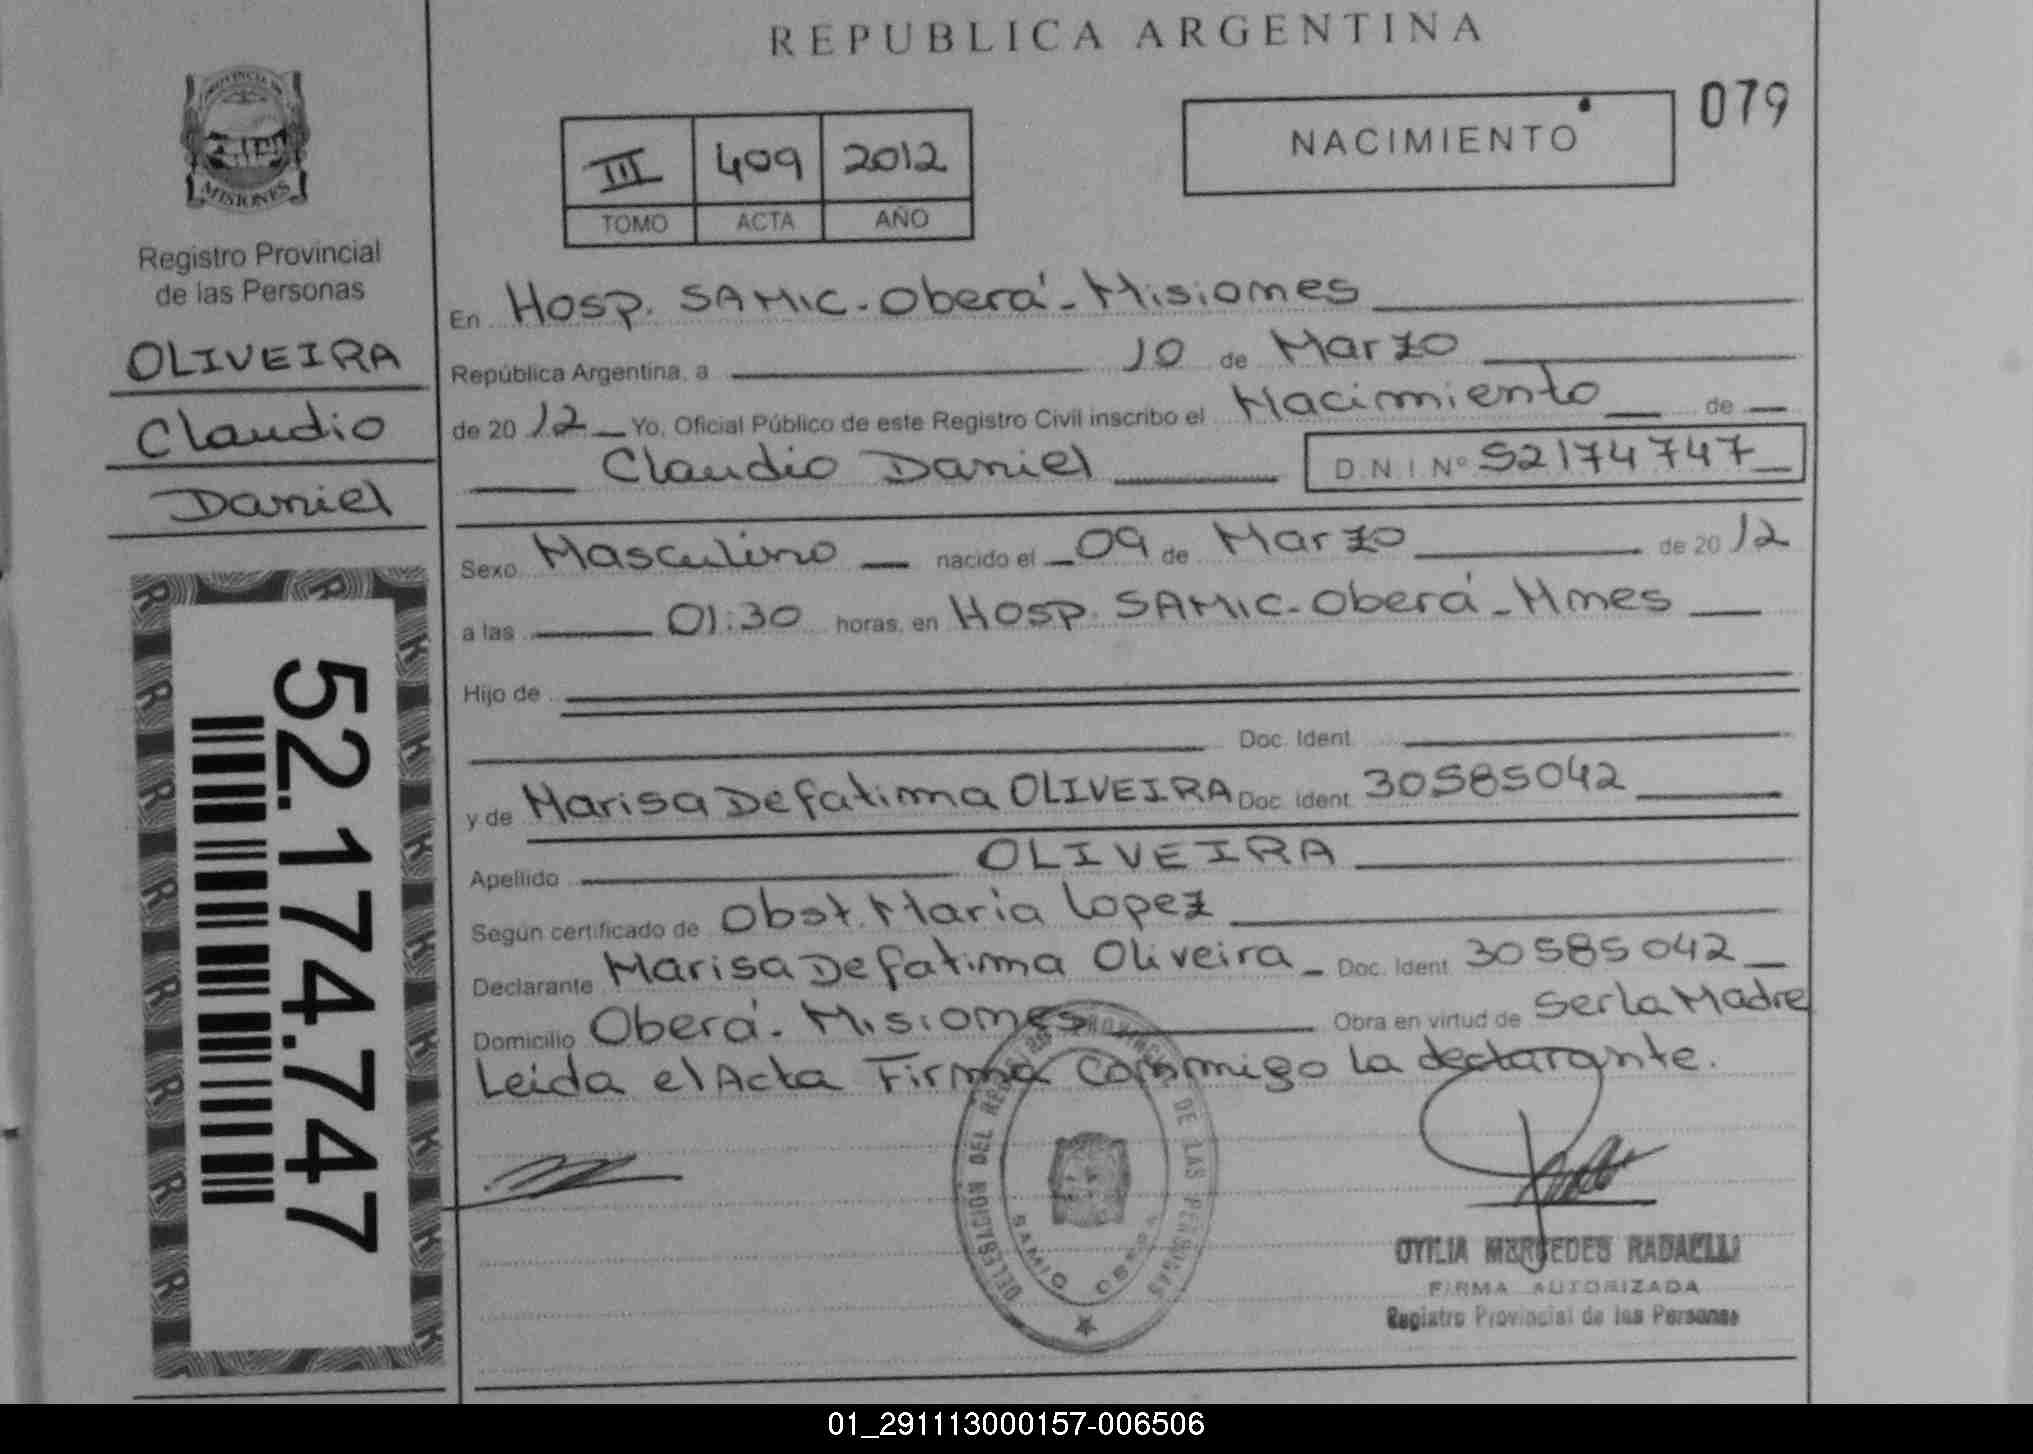 REPUBLICA ARGENTINA
079
NACIMIENTO
III 409 2012
TOMO ACTA AÑO
MISIONES
Registro Provincial
de las Personas
OLIVEIRA
Claudio
Daniel
52.174.747
En Hosp. SAMIC - Oberá - Misiones
República Argentina, a 10 de Marzo
de 2012 Yo, Oficial Público de este Registro Civil inscribo el Nacimiento de
Claudio Daniel D.N.I. Nº 52174747
Sexo Masculino nacido el 09 de Marzo de 2012
a las 01:30 horas, en Hosp. SAMIC - Oberá - Mnes
Hijo de
Doc. Ident.
y de Marisa De fatima OLIVEIRA Doc. Ident. 30585042
Apellido OLIVEIRA
Según certificado de Obst. Maria Lopez
Declarante Marisa De fatima Oliveira Doc. Ident. 30585042
Domicilio Oberá - Misiones Obra en virtud de Ser la Madre
Leida el Acta Firma Conmigo la declarante.
DELEGACION DEL REG. PROVINCIAL DE LAS PERSONAS
OBERA
OTILIA MERCEDES RADAELLI
FIRMA AUTORIZADA
Registro Provincial de las Personas
01_291113000157-006506